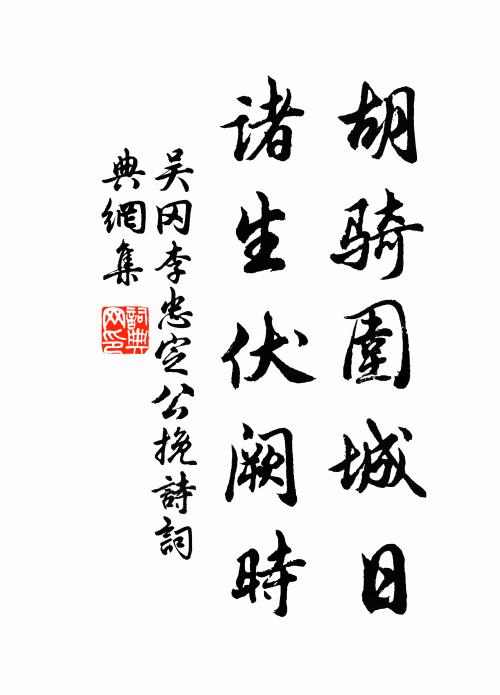 胡骑圍城日
诸生伏阙時
吴冈李忠定公挽詩詞
典網集
詞典网印